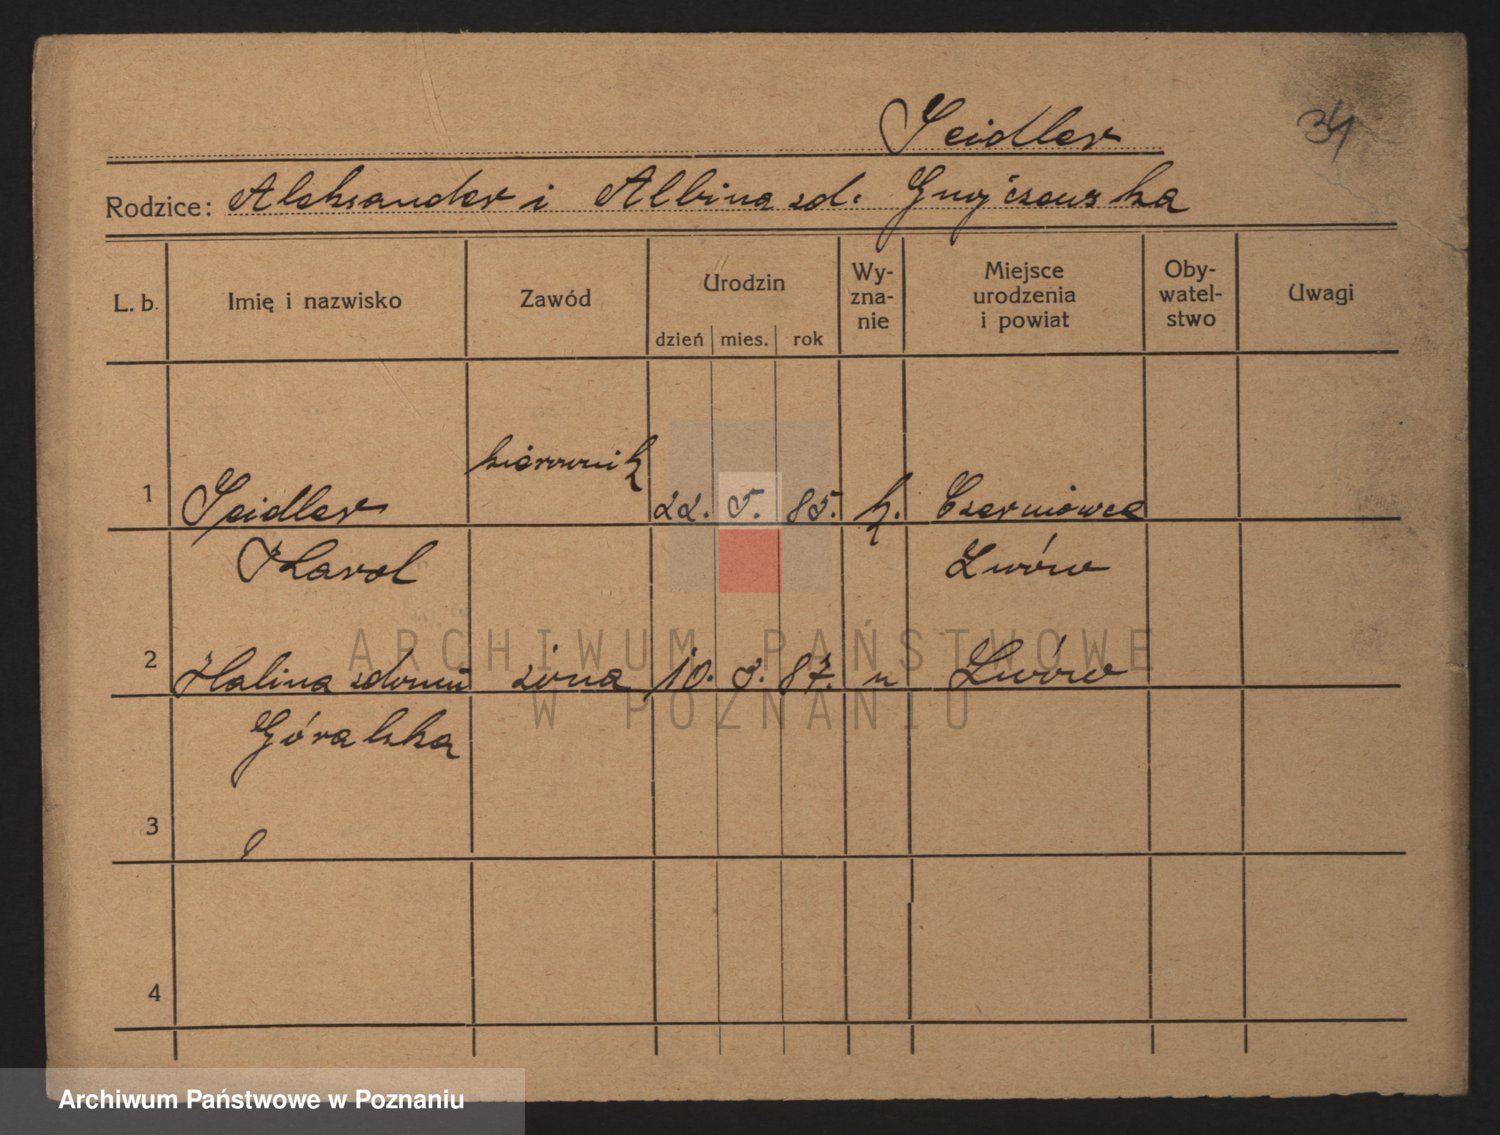 Seidler
34
Rodzice: Aleksander i Albina zd.
L. b.
Imię i nazwisko
Zawód
Urodzin
dzień mies. rok
Wy-
zna-
nie
Miejsce
urodzenia
i powiat
Oby-
watel-
stwo
Uwagi
kierownik
1 Seidler 22. 5. 85. k. Czerniowce
Karol Lwów
2 Halina z domu żona 10. 87. " Lwów
Góralska
3
4
ARCHIWUM PAŃSTWOWE
W POZNANIU
Archiwum Państwowe w Poznaniu